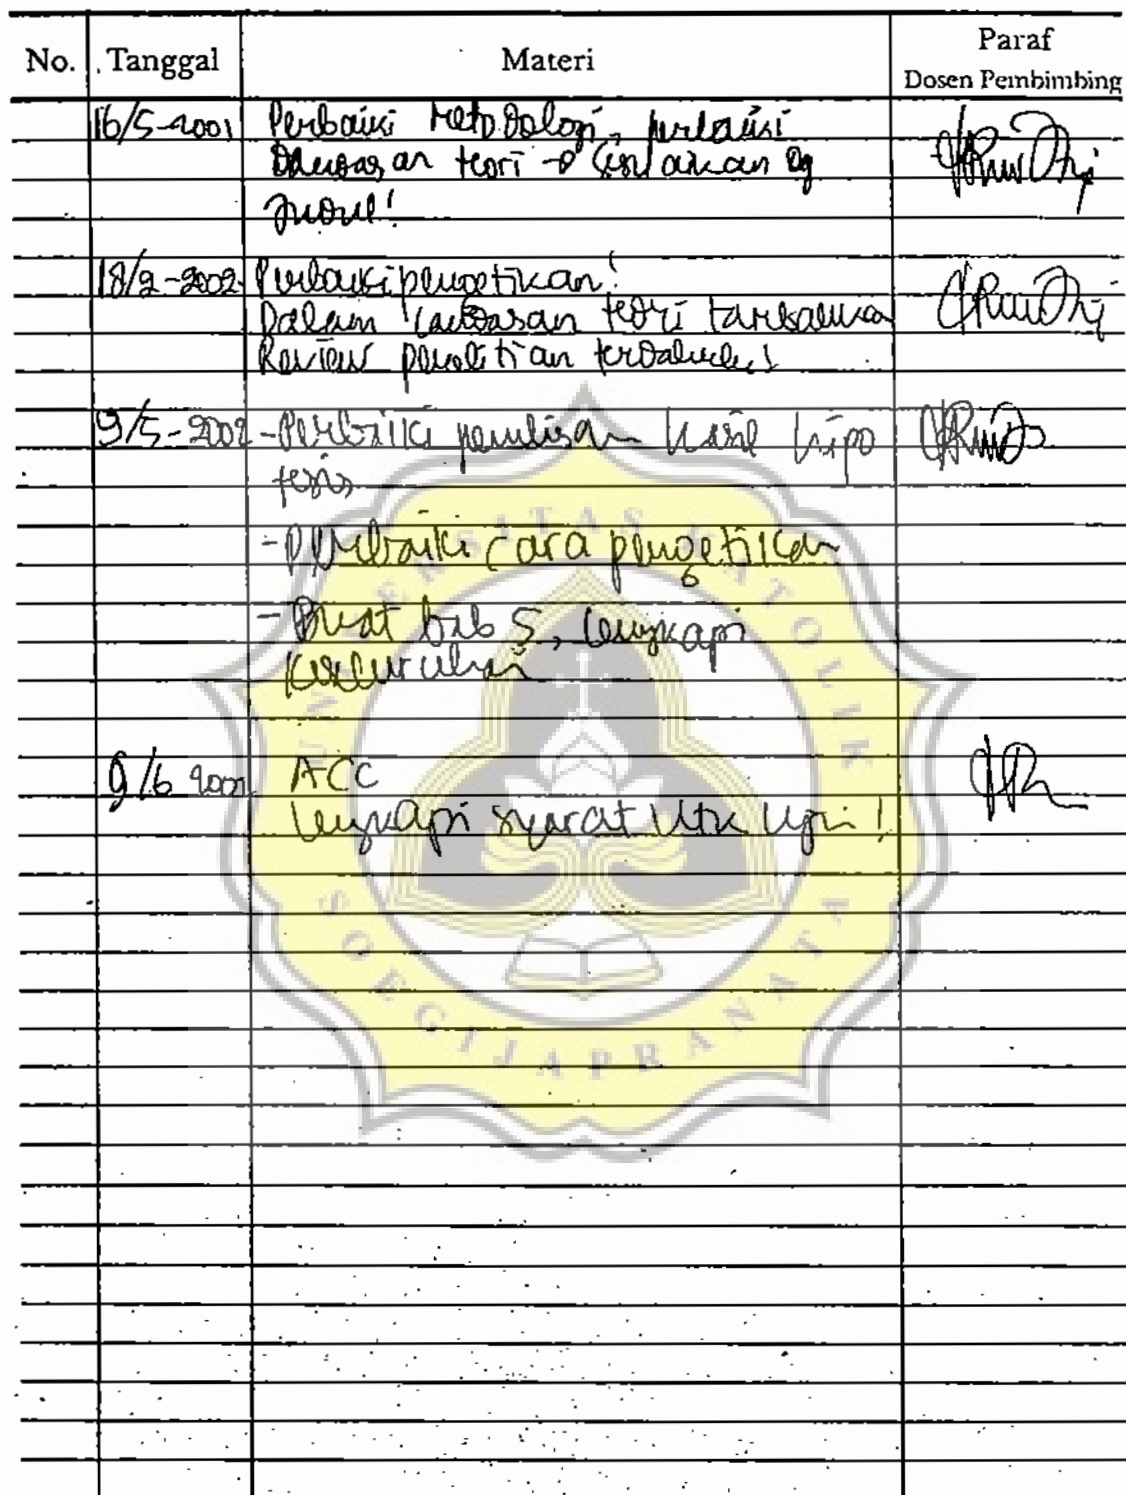 No. Tanggal Materi Paraf
Dosen Pembimbing
16/5-2001 Perbaiki Metodologi, perbaiki
landasan teori → sesuaikan dg
judul!
18/2-2002 Perbaiki pengetikan!
Dalam landasan teori tambahkan
Review penelitian terdahulu!
9/5-2002 - Perbaiki penulisan hasil hipo
tesis
- Perbaiki cara pengetikan
- Buat bab 5, lengkapi
keseluruhan
9/6 ACC
lengkapi syarat utk ujian!
UNIVERSITAS KATOLIK
SOEGIJAPRANATA